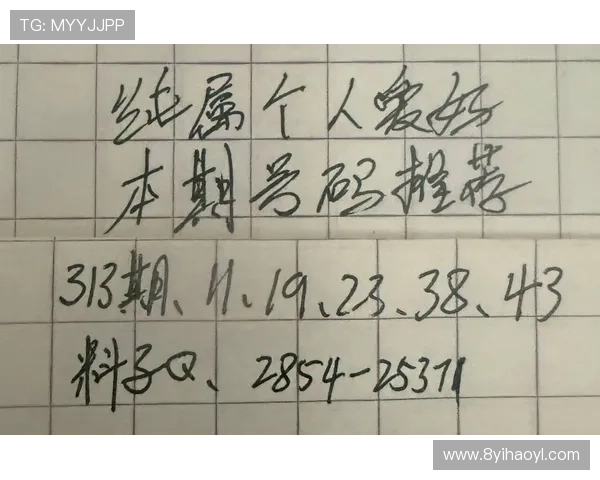 TG: MYYJJPP
纯属个人爱好
本期号码推荐
313期、11、19、23、38、43
料子Q、2854-25371
www.8yihaoyl.com